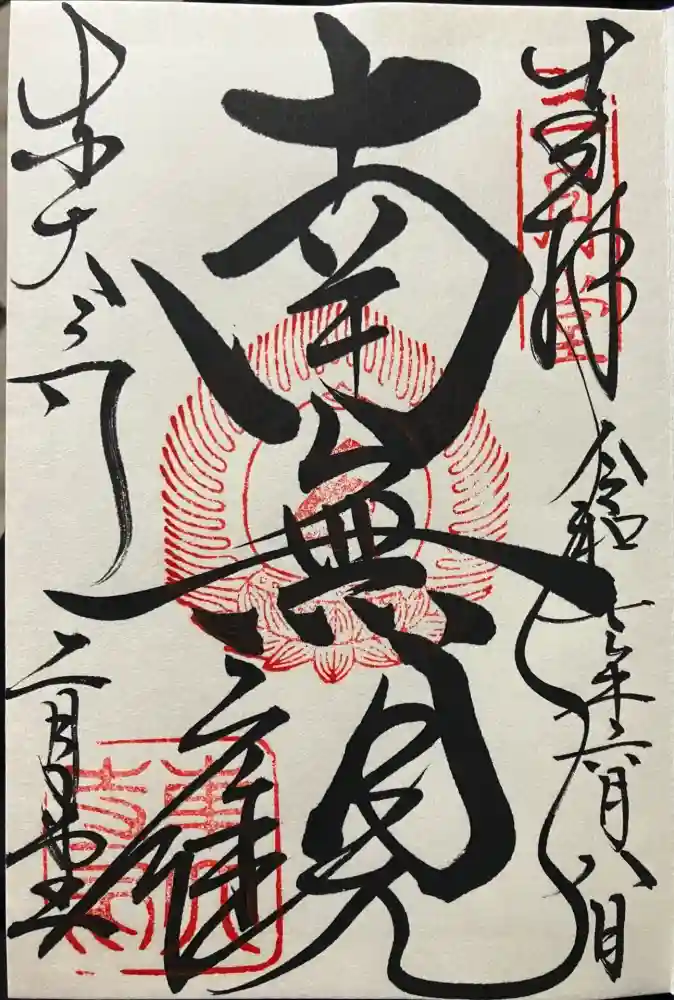 奉拝 令和七年六月八日
南無観
東大寺 二月堂